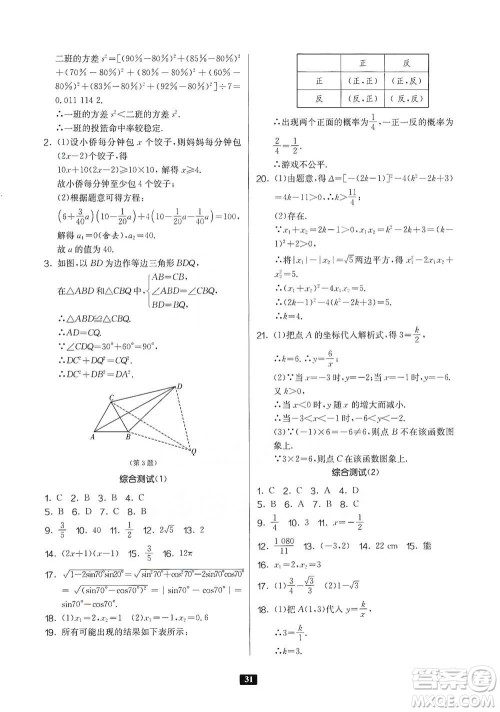 二班的方差 s²=[(90%-80%)²+(85%-80%)²
+(70%-80%)²+(80%-80%)²+(60%-80%)²
+(80%-80%)²+(90%-80%)²]÷7=
0.011 114 2.
∴一班的方差 s²<二班的方差 s².
∴一班的投篮命中率较稳定.
2. (1)设小侨每分钟包 x 个饺子,则妈妈每分钟包
(2x-2)个饺子,得
10x+10(2x-2)≥10×10,解得 x≥4.
故小侨每分钟至少包 4 个饺子.
(2)根据题意可得方程:
(6+3/40 a)(10-1/20 a)+4(10-1/20 a)=100,
解得 a₁=0(舍去), a₂=40.
故 a 的值为 40.
3. 如图,以 BD 为边作等边三角形 BDQ,
在△ABD 和△CBQ 中{AB=CB,
∠ABD=∠CBQ,
BD=BQ,
∴△ABD≌△CBQ.
∴∠CDQ=30°+60°=90°.
∴DC²+DQ²=CQ².
∴DC²+DB²=DA².
C
D
A
B
Q
(第 3 题)
综合测试(1)
1. C 2. D 3. D 4. A 5. B 6. C 7. B 8. C
9. 3/5 10. 40 11. 2 12. 2√5 13. 1/4
14. (2x+1)(x-1) 15. 3/5 16. 12π
17. √1-2sin70°sin20°=√(sin70°-sin20°)²=
sin70°-sin20°
18. (1)x₁=2,x₂=6 (2)x₁=2,x₂=0.6
19. 所有可能出现的结果如下表所示:
正 反
正 (正,正) (正,反)
反 (反,正) (反,反)
∴出现两个正面的概率为1/4,
∴一正一反的概率为2/4=1/2.
∴游戏不公平.
20. (1)由题意,得 Δ=[-(2k-1)]²-4(k²-2k+3)
=4k-11>0,∴k>11/4
(2)存在.
∵x₁x₂=k²-2k+3=(k-1)²+2>0,
∴将|x₁|-|x₂|=√5两边平方,得 x₁²-2x₁x₂+
x₂²=5.
∴(x₁+x₂)²-4x₁x₂=5.
∴(2k-1)²-4(k²-2k+3)=5.
∴4k-11=5.
∴k=4.
21. (1)把点 A 的坐标代入解析式,得 3=k/2
∴k=6. ∴y=6/x
(2)∵当 x=-3 时,y=-2;当 x=-1 时,y=-6.
又 k>0,
∴当 x<0 时,y 随 x 的增大而减小.
∴当-3<x<-1 时,-6<y<-2.
(3)∵(-1)×6=-6≠6,∴点 B 不在该函数图
象上.
∵3×2=6,∴点 C 在该函数图象上.
综合测试(2)
1. C 2. D 3. C 4. A 5. B 6. B 7. C 8. A
9. 3/2 10. 1/4 11. 2
12. 1 080/11 13. (-3,2) 14. 22 cm 15. 能
16. x₁=0,x₂=4
17. (1)√3/3 (2)x₁=-1,x₂=3
18. (1)把 A(1,3)代入 y=k/x,得
∴k=3.
31
答案圈
MXQE.COM